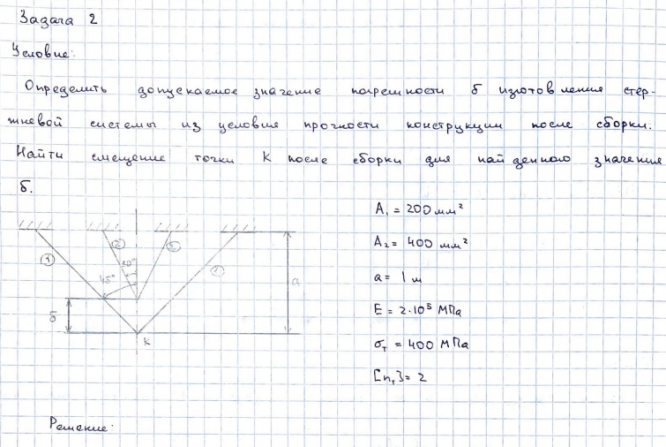 Задача 2
Условие:
Определить допускаемое значение погрешности δ изготовления стер-
жневой системы из условия прочности конструкции после сборки.
Найти смещение точки К после сборки для найденного значения
δ.
A₁ = 200 мм²
A₂ = 400 мм²
a = 1 м
E = 2·10⁵ МПа
σт = 400 МПа
[nт] = 2
① ② ② ①
45° 30°
δ
a
K
Решение: